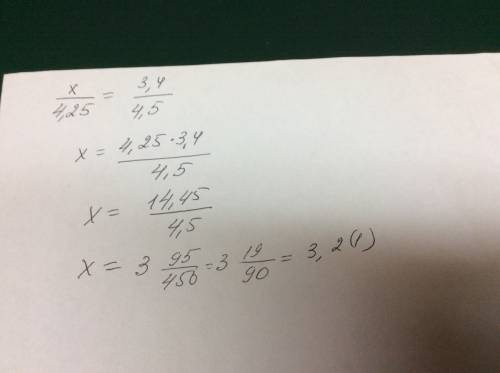 x/4,25 = 3,4/4,5
x = 4,25·3,4/4,5
x = 14,45/4,5
x = 3 95/450 = 3 19/90 = 3,2(1)